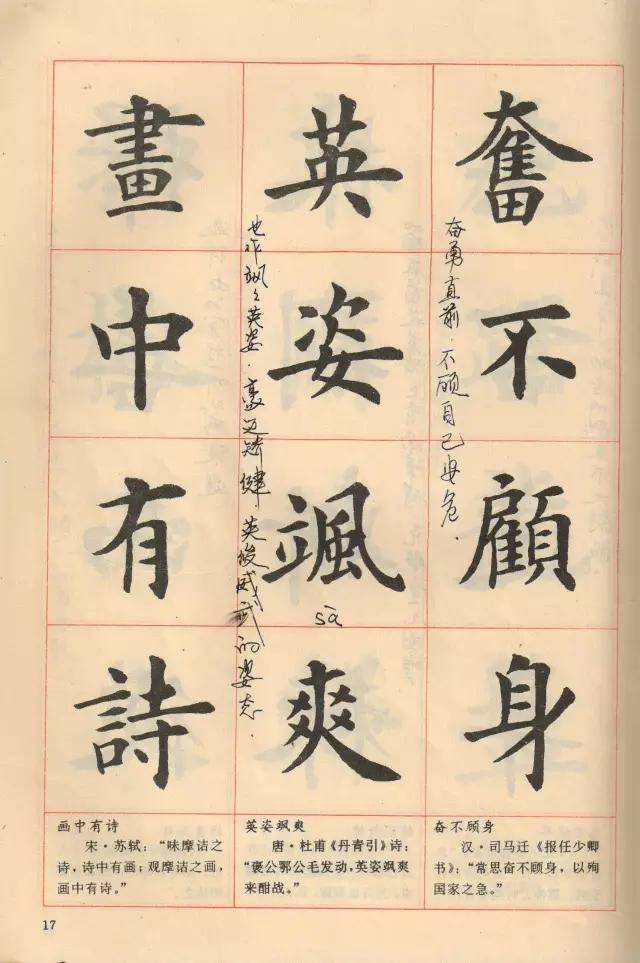 奮不顧身
奋勇直前．不顾自己安危．
英姿颯爽
sà
也作飒飒英姿．豪迈矫健．英俊威武的姿态．
畫中有詩
画中有诗
宋·苏轼：“味摩诘之
诗，诗中有画；观摩诘之画，
画中有诗。”
英姿飒爽
唐·杜甫《丹青引》诗：
“褒公鄂公毛发动，英姿飒爽
来酣战。”
奋不顾身
汉·司马迁《报任少卿
书》：“常思奋不顾身，以殉
国家之急。”
17